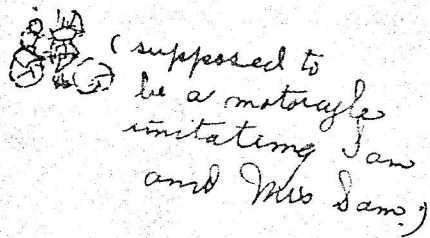 (supposed to
be a motorcycle
imitating Sam
and Mrs Sam.)